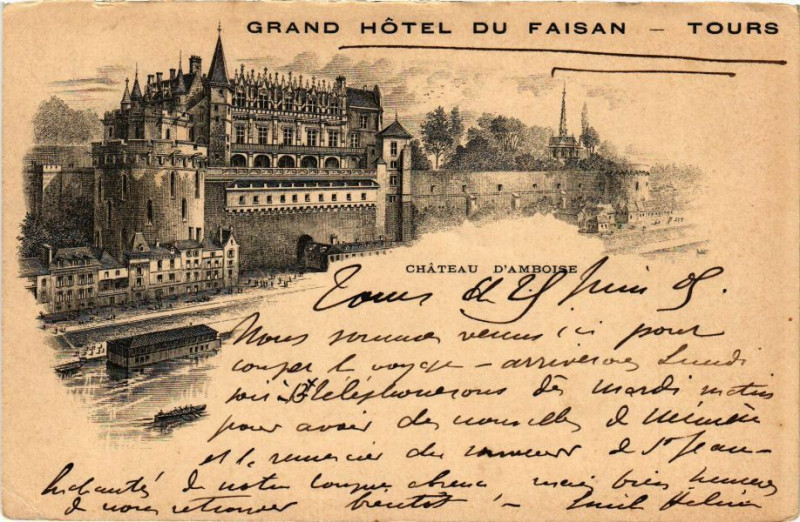 GRAND HÔTEL DU FAISAN — TOURS
CHÂTEAU D'AMBOISE
Tours le 25 Juin 05.
Nous sommes venus ici pour
couper le voyage — arriverons Lundi
soir à téléphonerons dès mardi matin
pour avoir des nouvelles de
et le remercier du de St Jean —
Enchantés de notre longue absence mais bien heureux
de nous retrouver bientôt ! — Emile